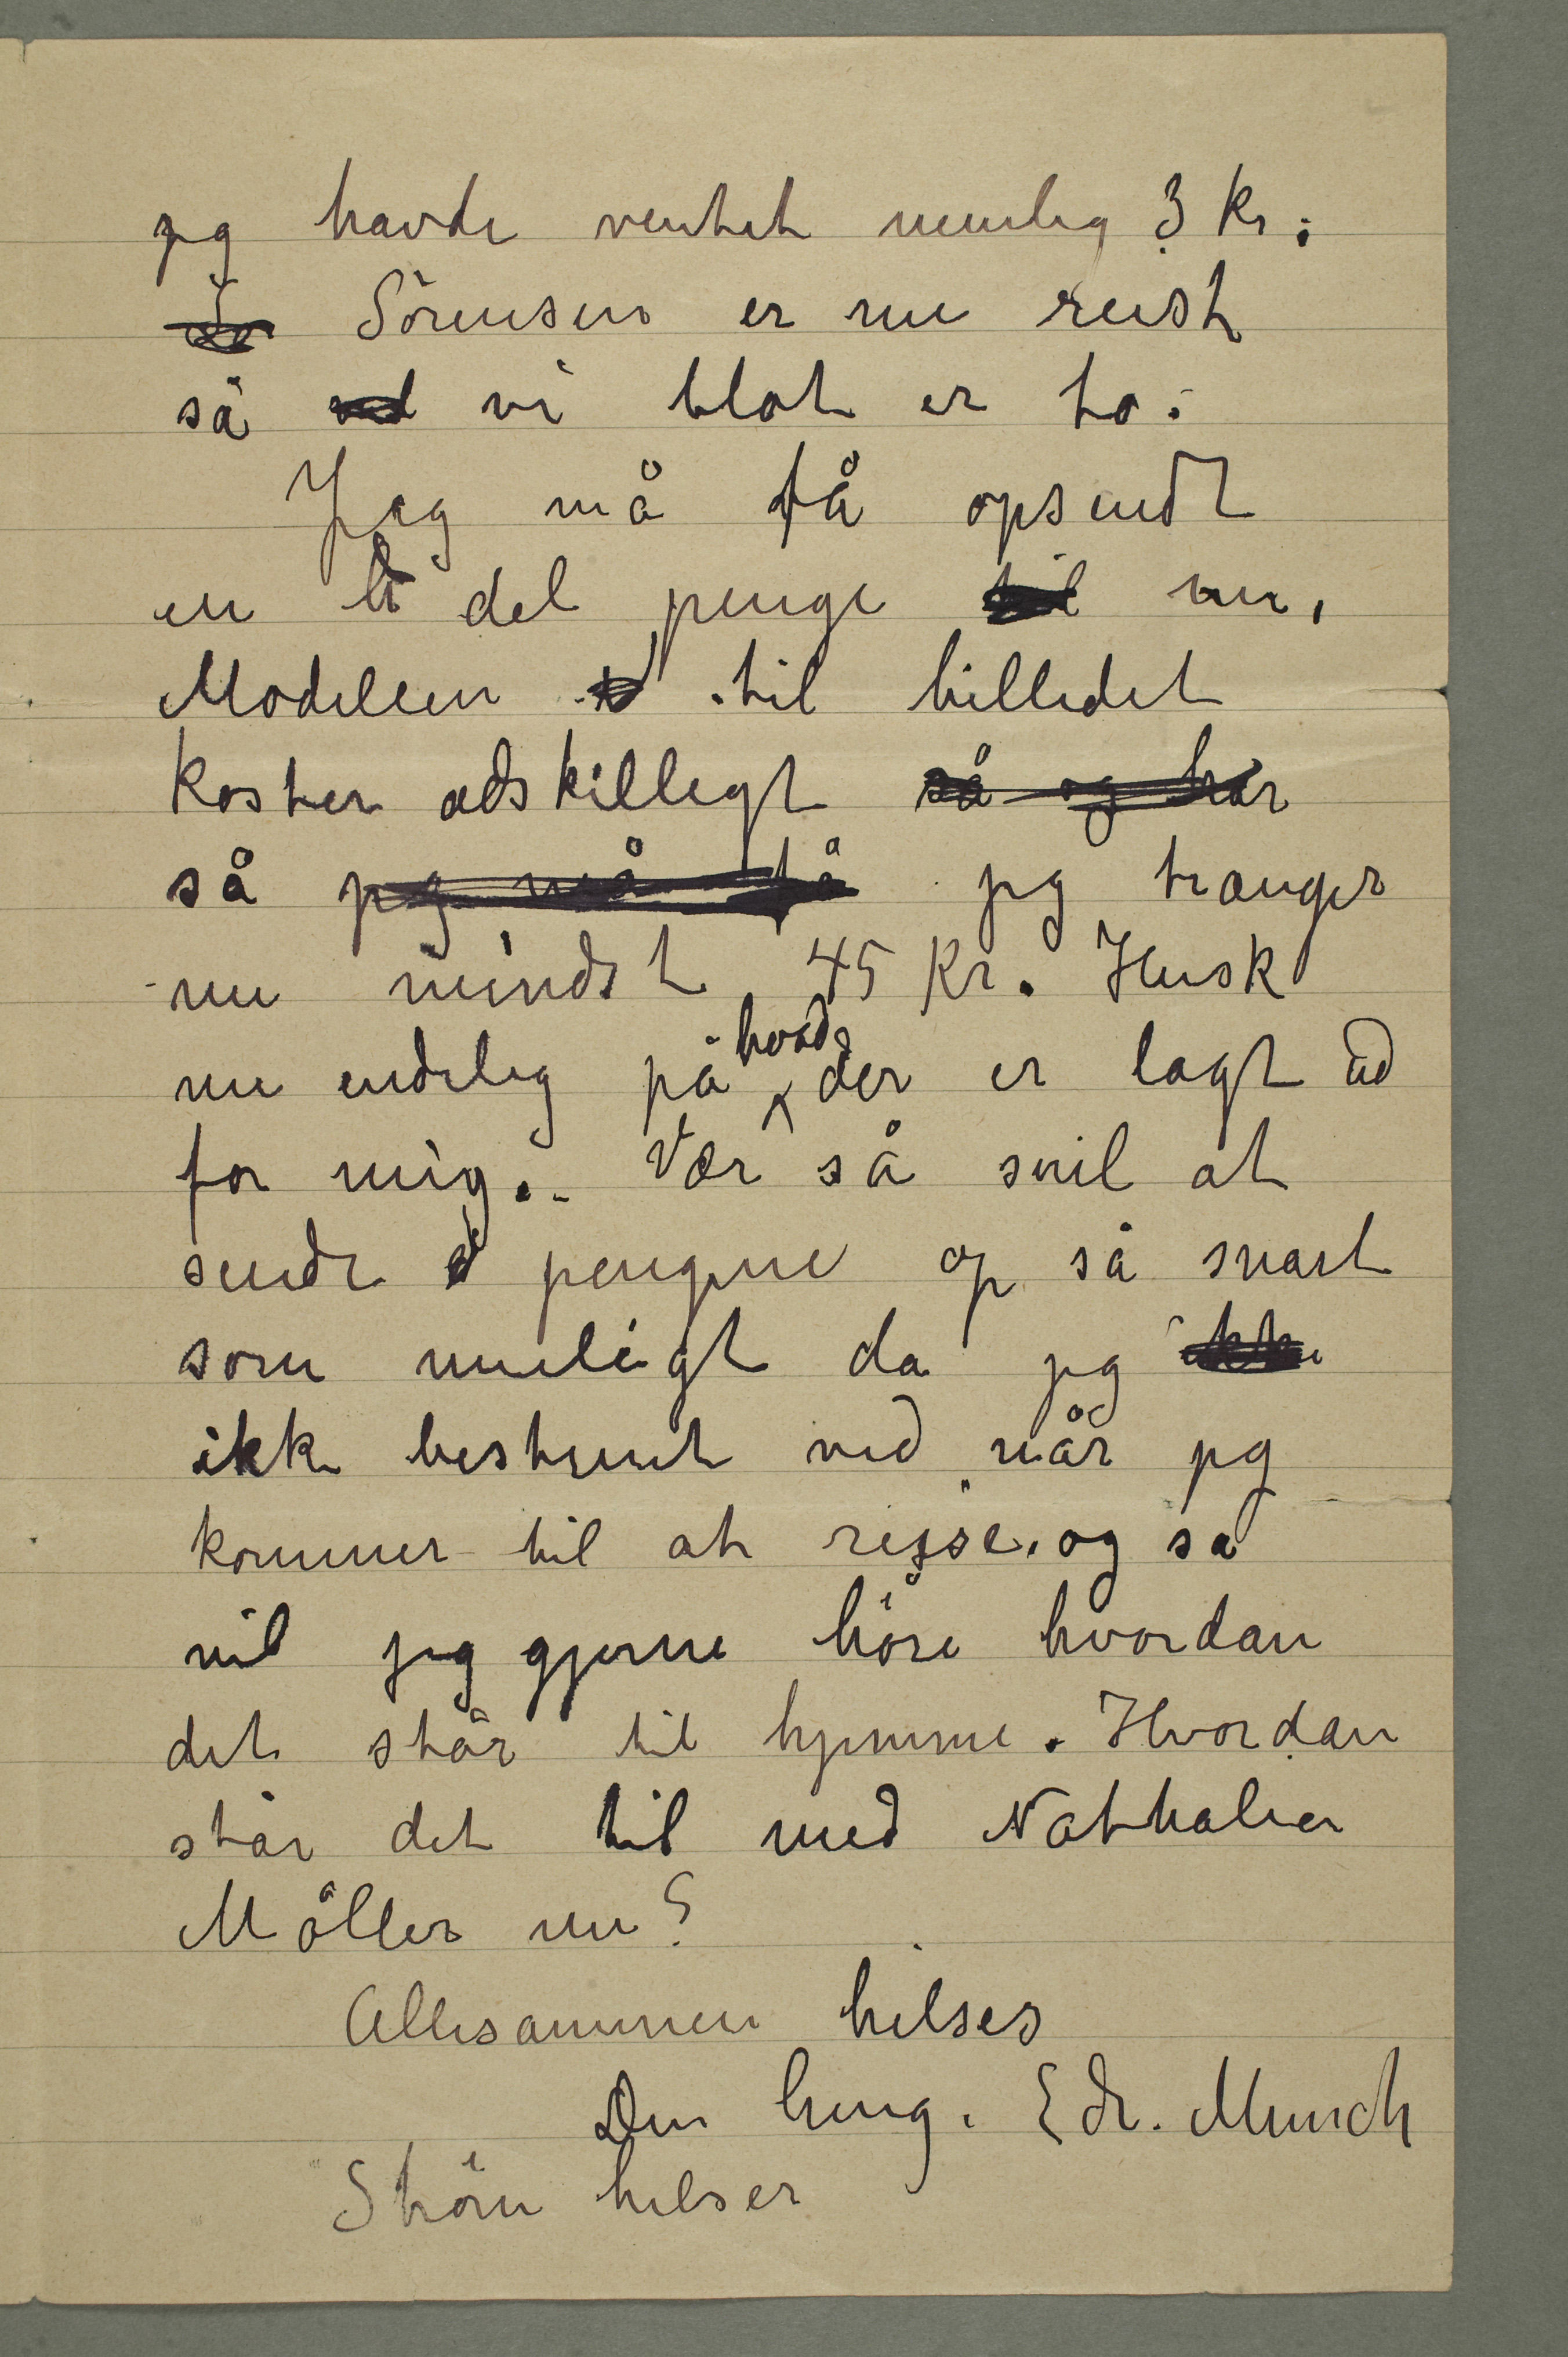 jeg havde ventet nemlig 3 kr:
Sörensen er nu reist
så vi blot er to.
Jeg må få opsendt
en del penge nu,
Modellen til billedet
koster adskilligt så og har
så jeg må få jeg trænger
nu mindst 45 kr. Husk
nu endelig på hvad der er lagt ud
for mig. Vær så snil at
sende pengene op så snart
som muligt da jeg ikke
ikke bestemt ved når jeg
kommer til at rejse, og så
vil jeg gjerne höre hvordan
det står til hjemme. Hvordan
står det til med Nathalia
Möller nu?
Allesammen hilses
Din heng. Edv. Munch
Ström hilser